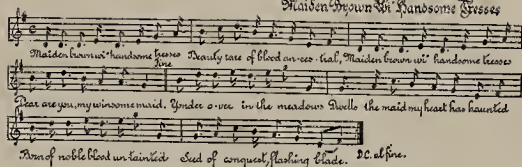 Maiden Brown Wi' Handsome Tresses
Maiden brown wi' handsome tresses Beauty rare of blood an-ces-tral, Maiden brown wi' handsome tresses
Fine
Dear are you, my winsome maid. Yonder o-ver in the meadows Dwells the maid my heart has haunted
Born of noble blood untainted Seed of conquest, flashing blade. D.C. al fine.